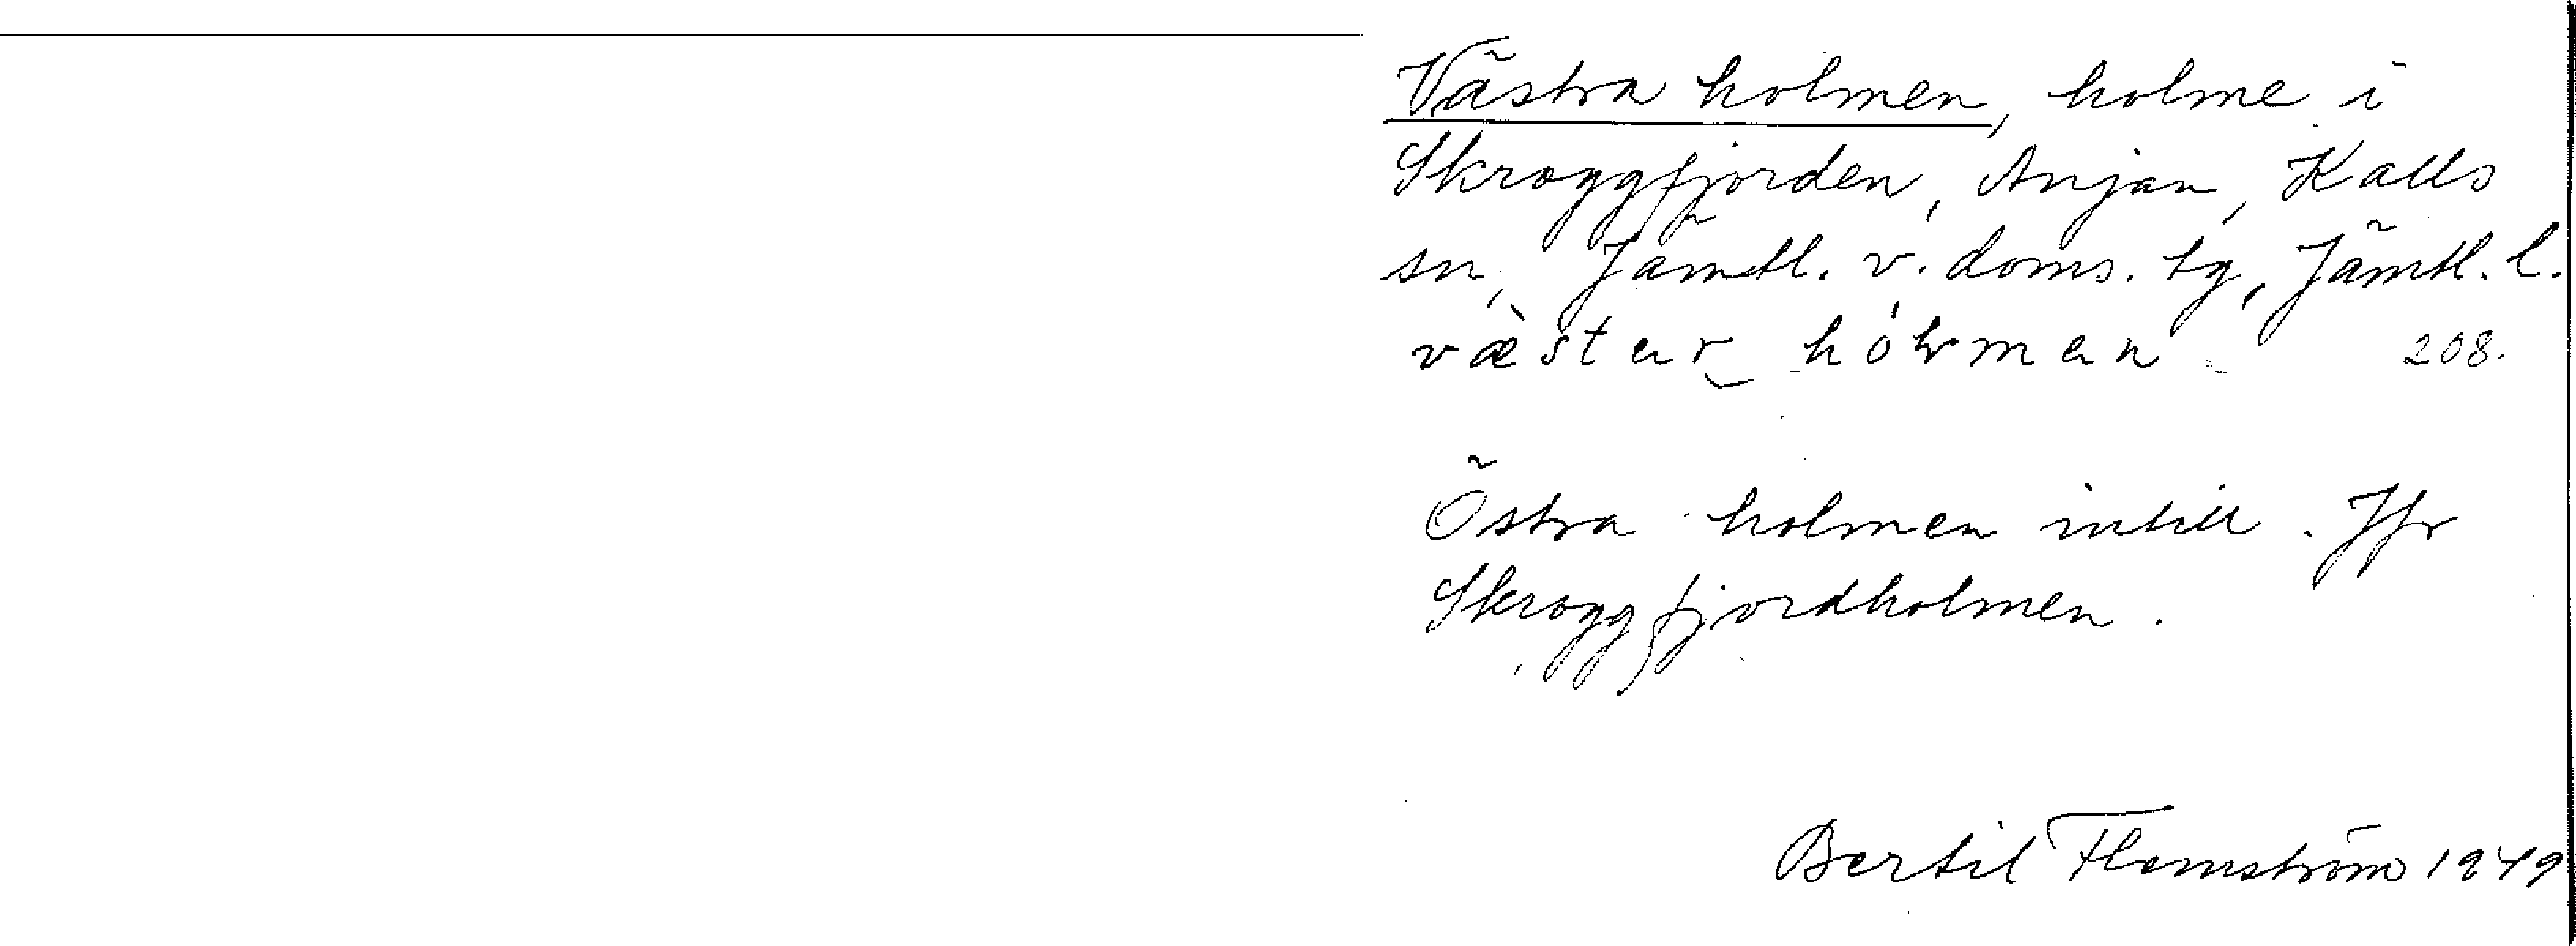 Västra holmen, holme i
Skroggfjorden, Anjan, Kalls
sn, Jämtl. v. doms. tg, Jämtl. l.
208.
Östra holmen intill. Jfr
Skroggfjordholmen.
Bertil Flemström 1949